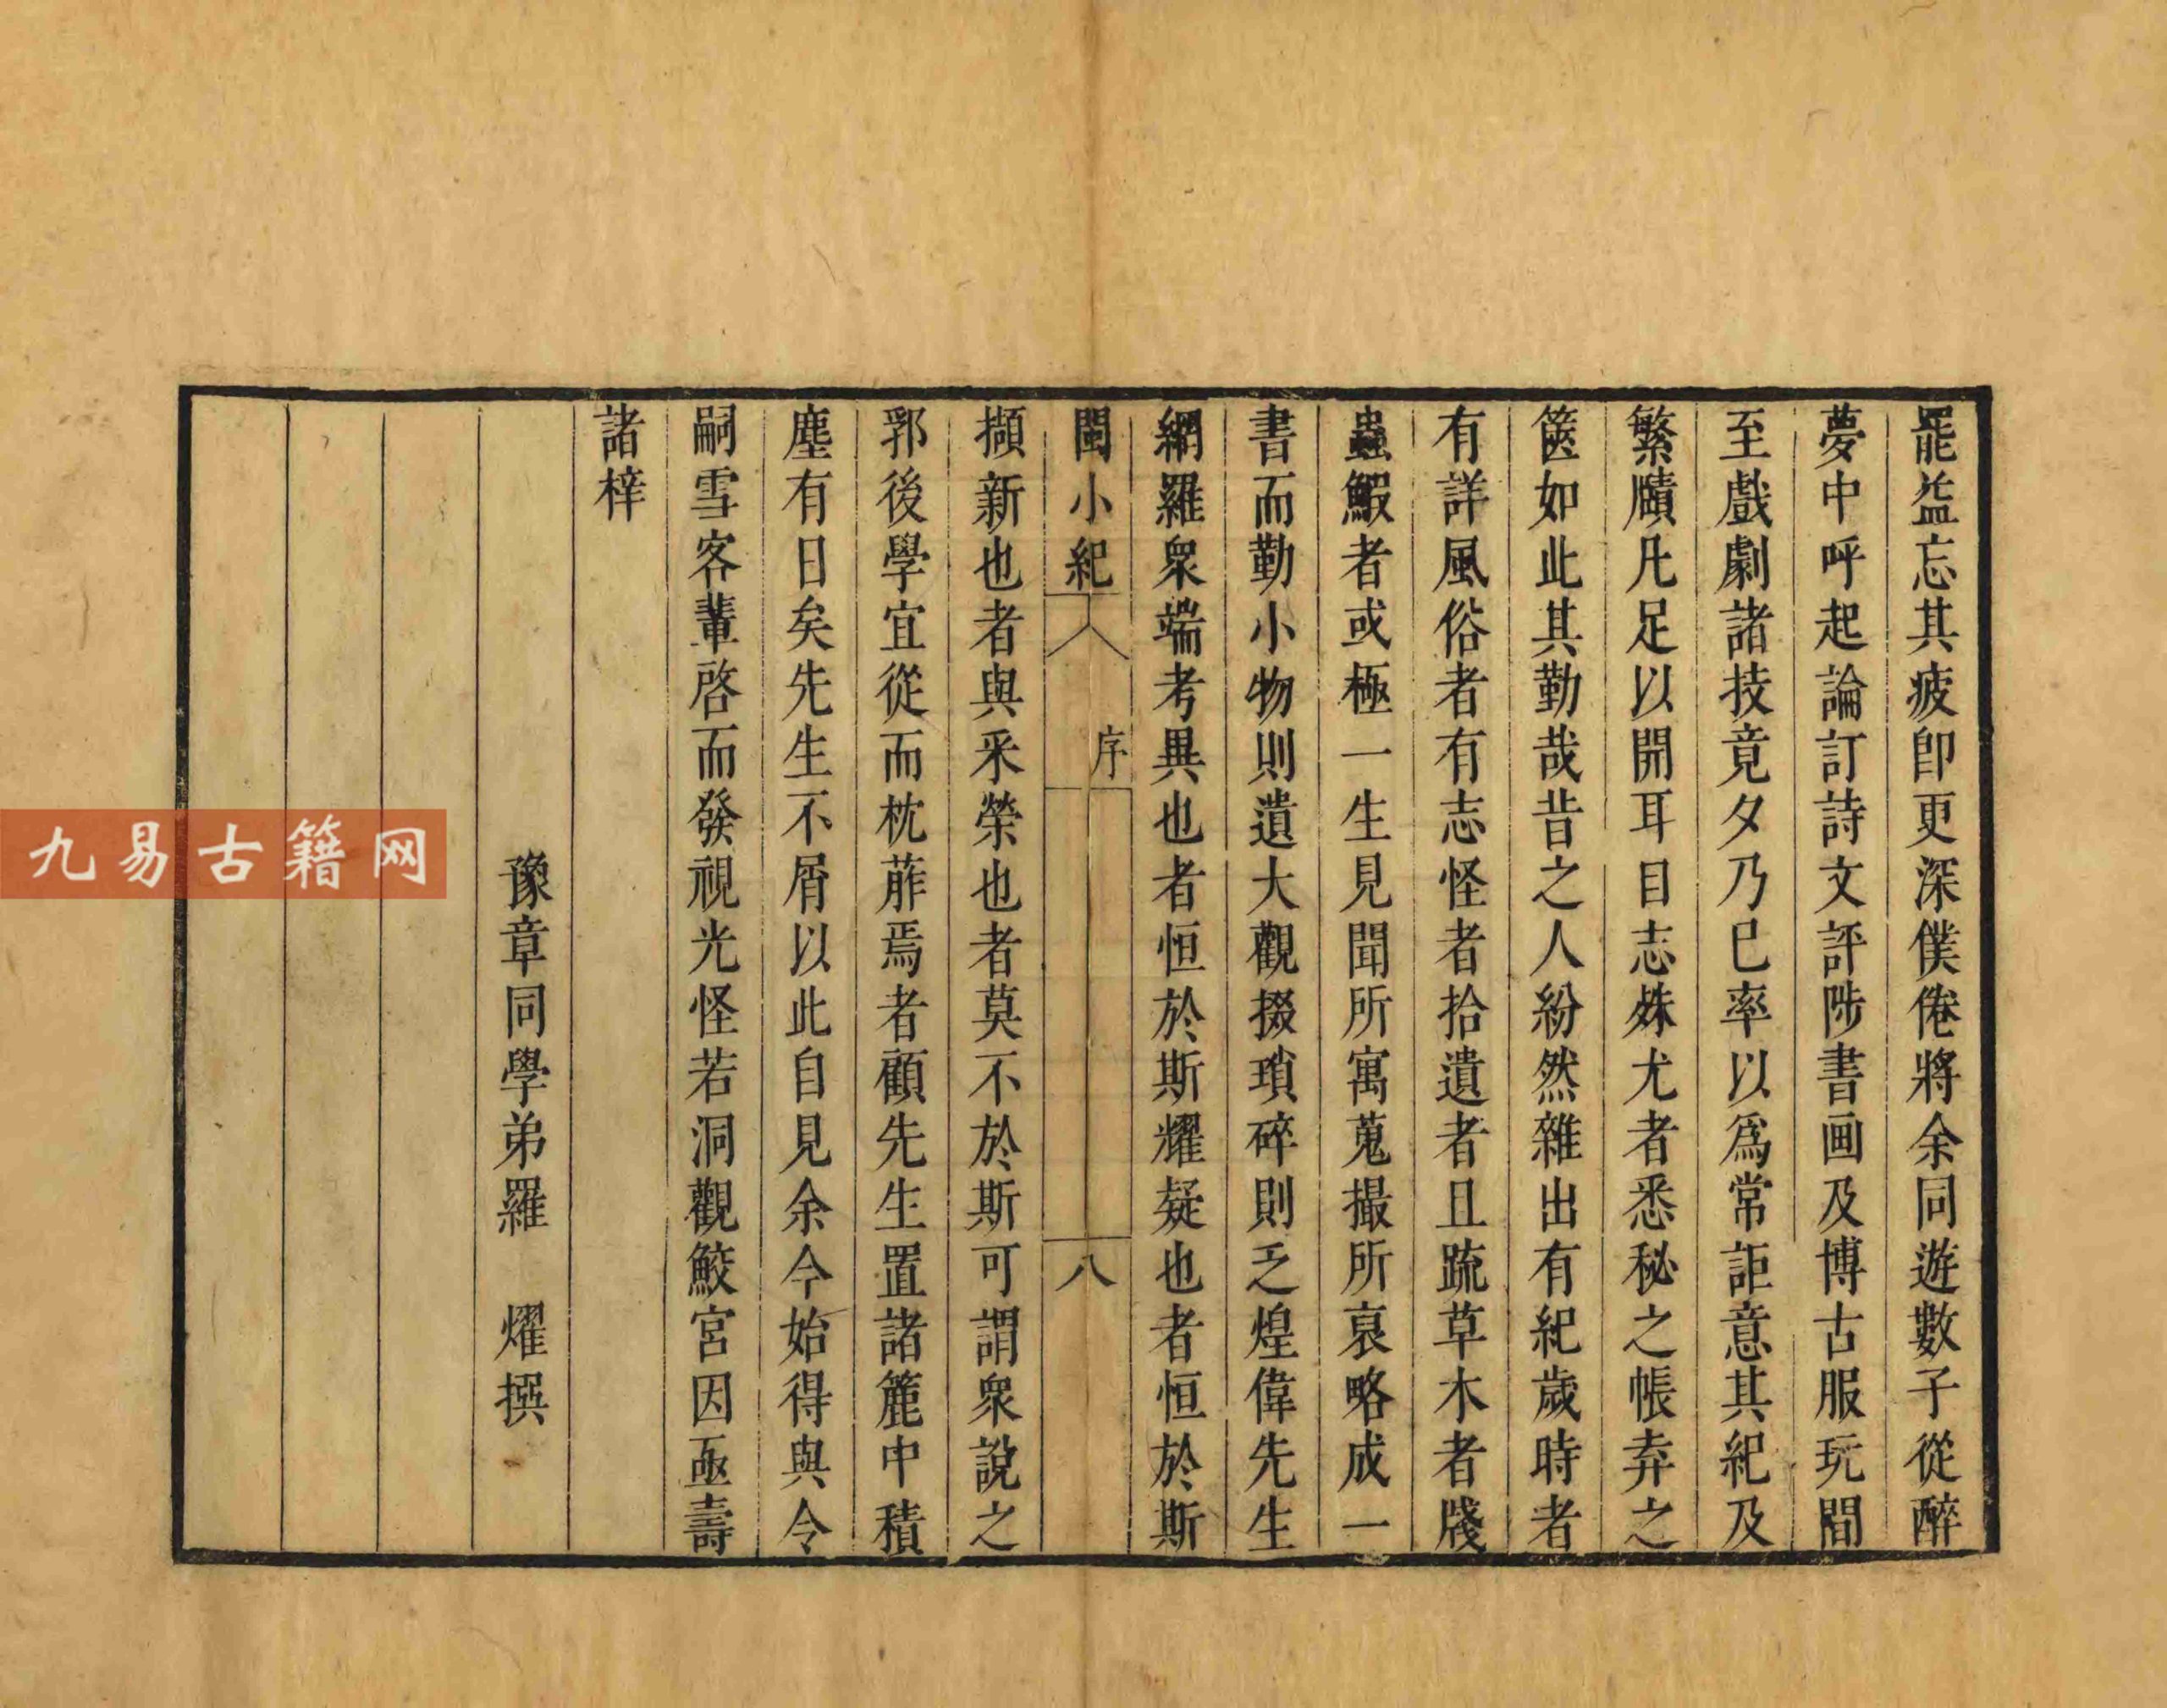 罷益忘其疲卽更深僕倦將余同遊數子從醉
夢中呼起論訂詩文評陟書画及博古服玩間
至戲劇諸技竟夕乃已率以爲常詎意其紀及
繁賾凡足以開耳目志姝尤者悉秘之帳弆之
篋如此其勤哉昔之人紛然雜出有紀歲時者
有詳風俗者有志怪者拾遺者且疏草木者牋
蟲鰕者或極一生見聞所寓蒐撮所裒略成一
書而勤小物則遺大觀掇瑣碎則乏煌偉先生
網羅衆端考異也者恒於斯耀疑也者恒於斯
閩小紀
序
八
擷新也者與采榮也者莫不於斯可謂衆說之
郛後學宜從而枕葄焉者顧先生置諸簏中積
塵有日矣先生不屑以此自見余今始得與令
嗣雪客輩啓而發視光怪若洞觀鮫宮因亟壽
諸梓
豫章同學弟羅 燿撰
九易古籍网